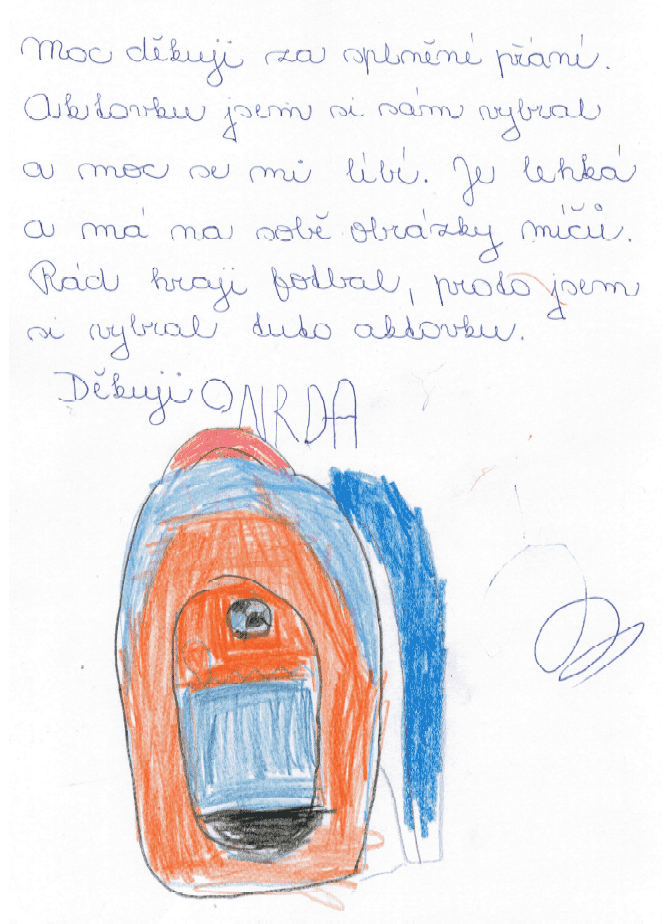 Moc děkuji za splnění přání.
Aktovku jsem si sám vybral
a moc se mi líbí. Je lehká
a má na sobě obrázky míčů.
Rád hraji fotbal, proto jsem
si vybral tuto aktovku.
Děkuji ONRDA